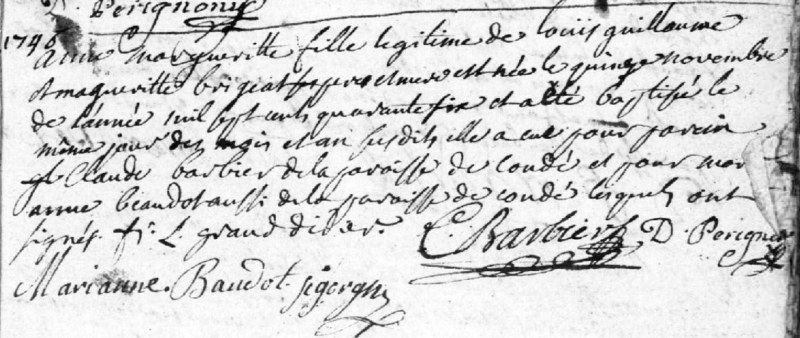 D. Perignon
1746
Anne margueritte fille legitime de louis guillaume
et margueritte brigeat ses pere et mere est née le quinze novembre
de l'année mil sept cents quarante six et a été baptisée le
même jour des mois et an susdits elle a eue pour parein
Claude barbier de la paroisse de condé et pour mar
anne beaudot aussi de la paroisse de condé lesquels ont
signés
C. Barbier D. Perignon
Marianne Baudot